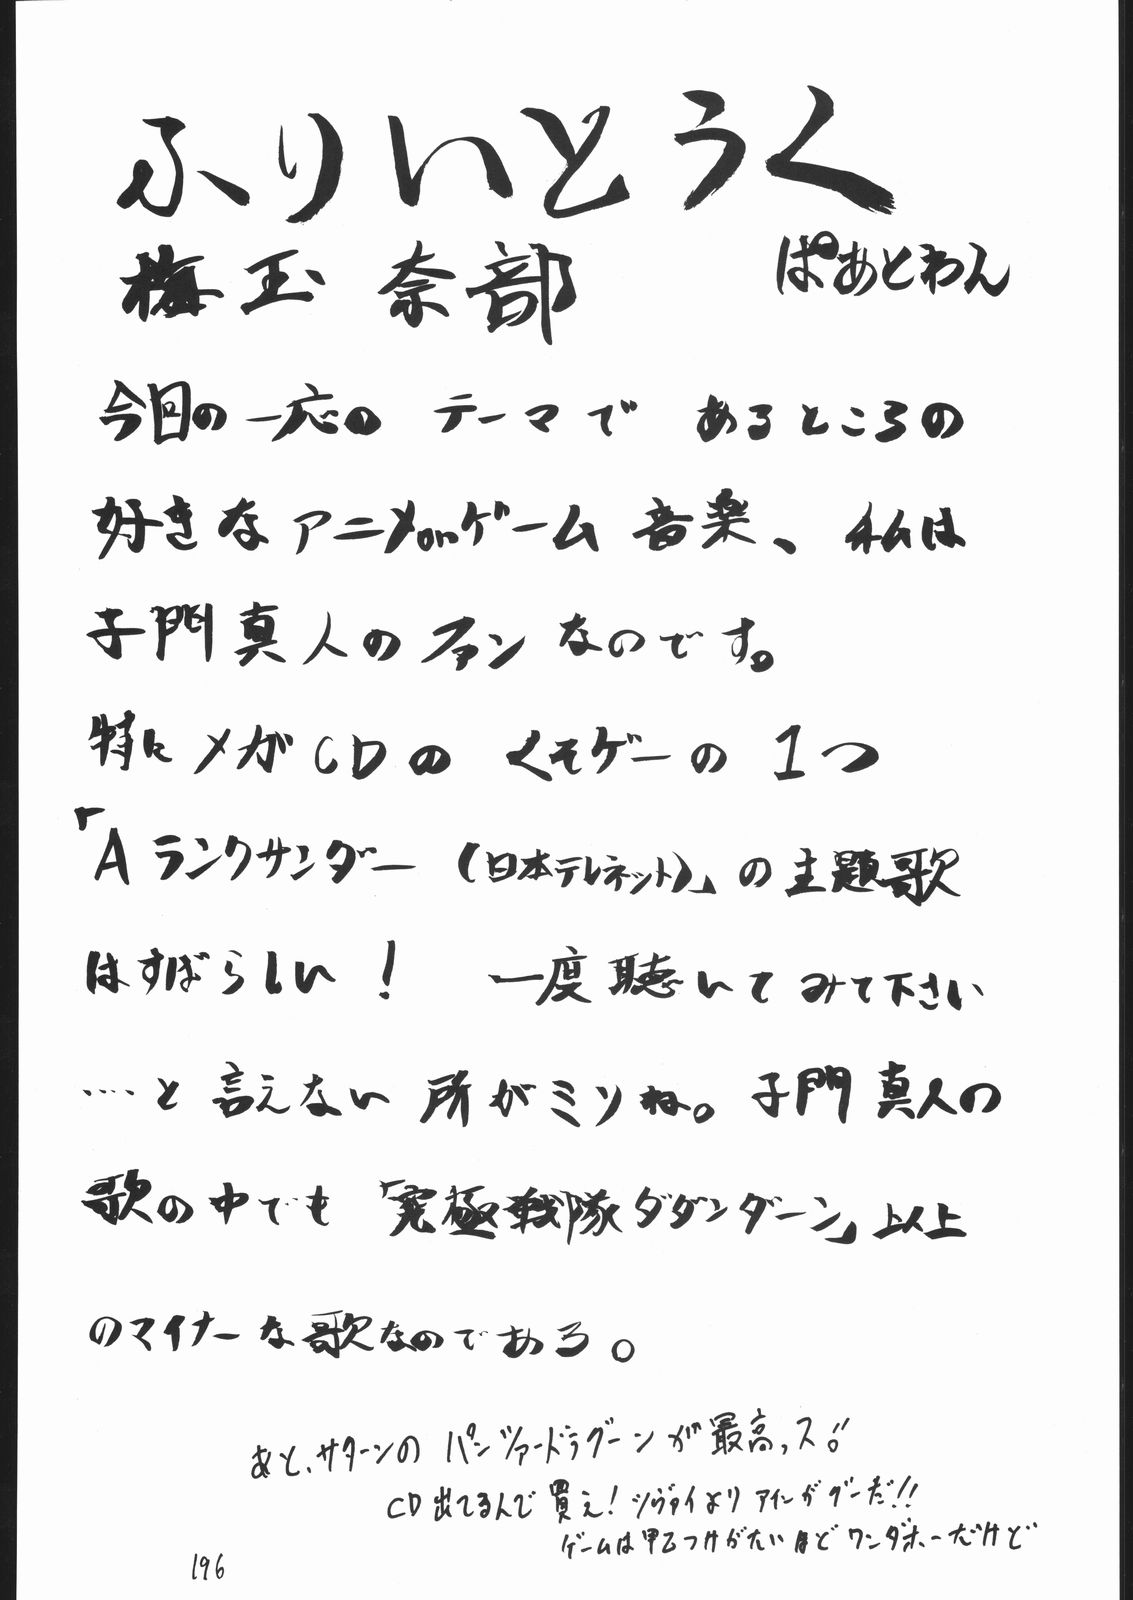 ふりいとうく
梅玉奈部 ぱあとわん
今回の一応の テーマで あるところの
好きな アニメonゲーム 音楽、私は
子門真人の ファン なのです。
特に メガCDの くそゲーの 1つ
「Aランクサンダー (日本テレネット)」の主題歌
はすばらしい! 一度聴いて みて下さい
‥‥と 言えない 所がミソね。子門真人の
歌の中でも 「究極戦隊ダダンダーン」以上
のマイナーな歌なのである。
あと、サターンの パンツァードラグーンが最高っス!!
CD出てるんで 買え! シヴァイより アインがグーだ!!
ゲームは甲乙つけがたいほど ワンダホーだけど
196